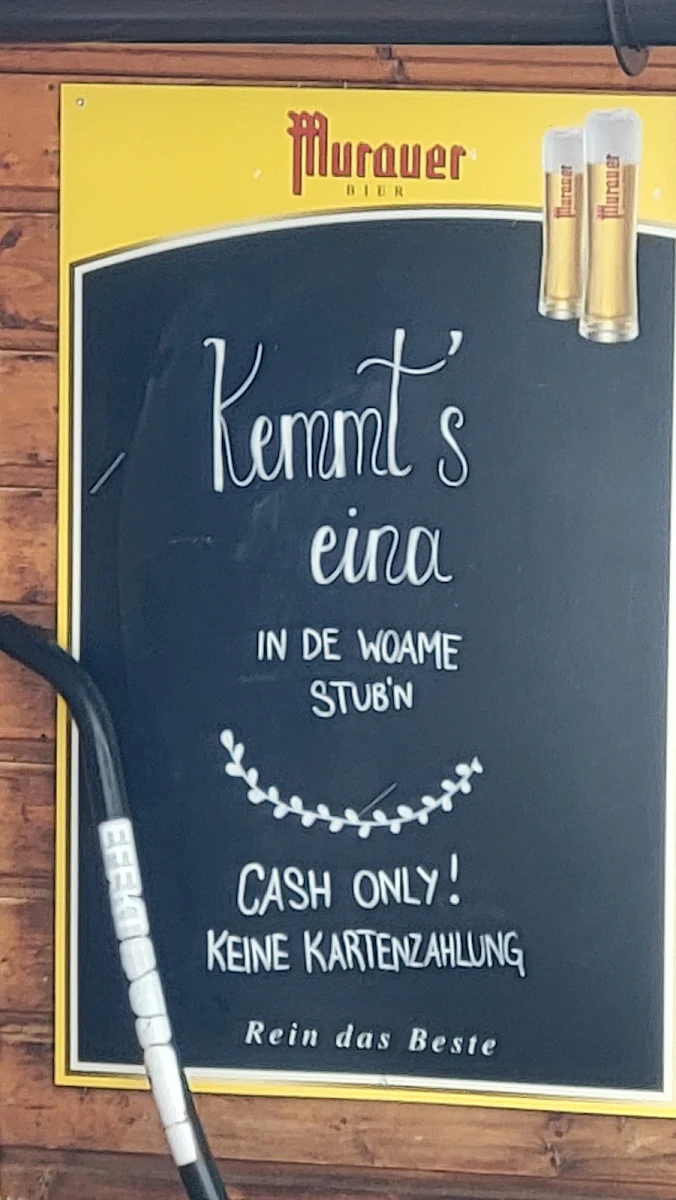 Murauer
BIER
Murauer
Murauer
Kemmt's
eina
IN DE WOAME
STUB'N
CASH ONLY!
KEINE KARTENZAHLUNG
Rein das Beste